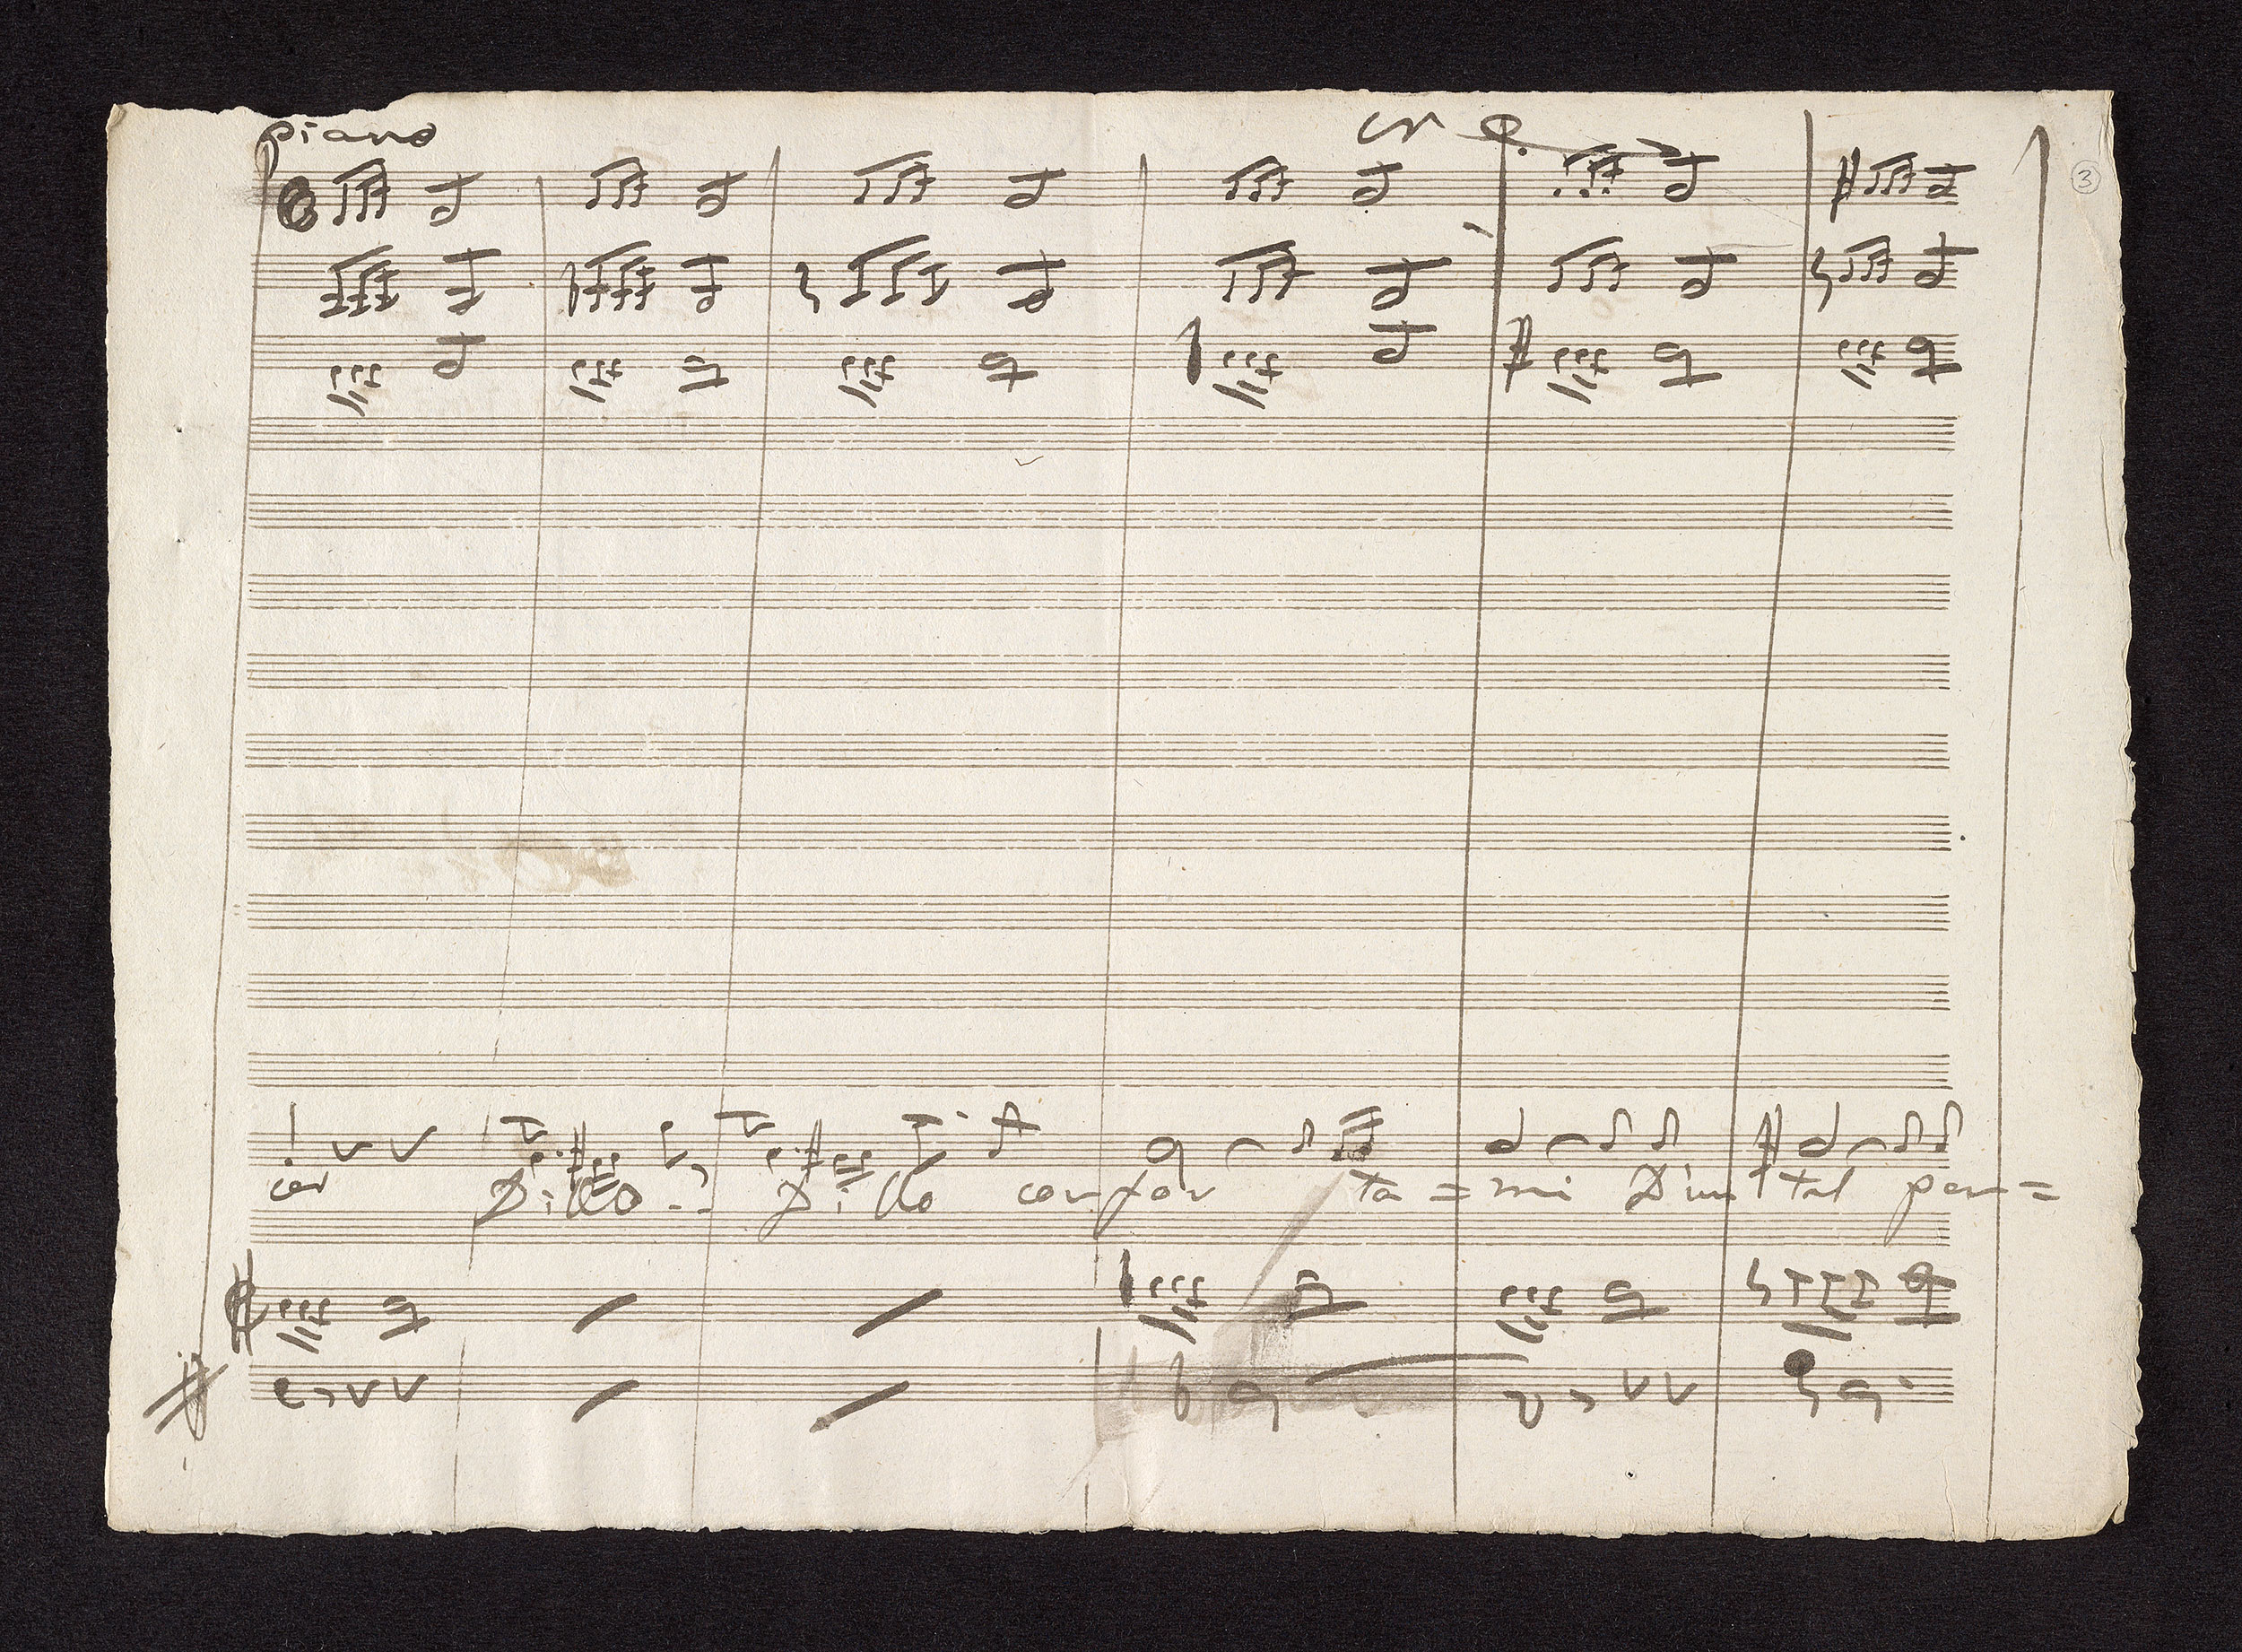 piano
3
cor Dillo -- Dillo confor ta = mi Dim tal pen =